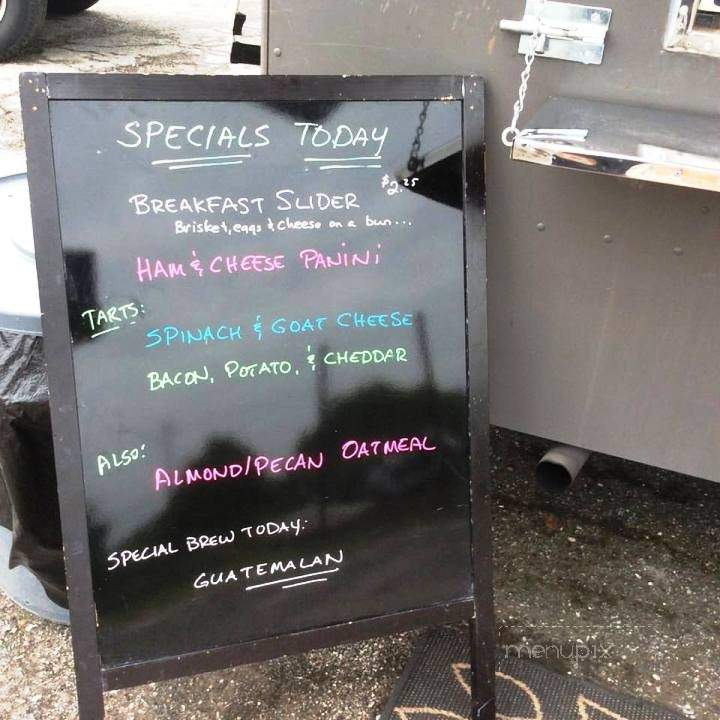 SPECIALS TODAY
BREAKFAST SLIDER $2.25
Brisket, eggs & cheese on a bun...
HAM & CHEESE PANINI
TARTS:
SPINACH & GOAT CHEESE
BACON, POTATO, & CHEDDAR
ALSO:
ALMOND/PECAN OATMEAL
SPECIAL BREW TODAY:
GUATEMALAN
menupix